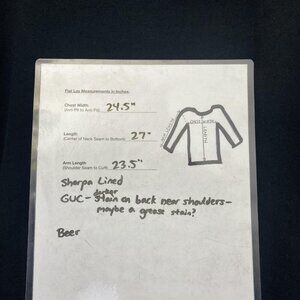 Flat Lay Measurements in Inches:
Chest Width
(Arm Pit to Arm Pit) 24.5"
Length
(Center of Neck Seam to Bottom) 27"
Arm Length
(Shoulder Seam to Cuff) 23.5"
CHEST WIDTH
LENGTH
ARM LENGTH
Sherpa Lined
darker
GUC- Stain on back near shoulders-
maybe a grease stain?
Beer